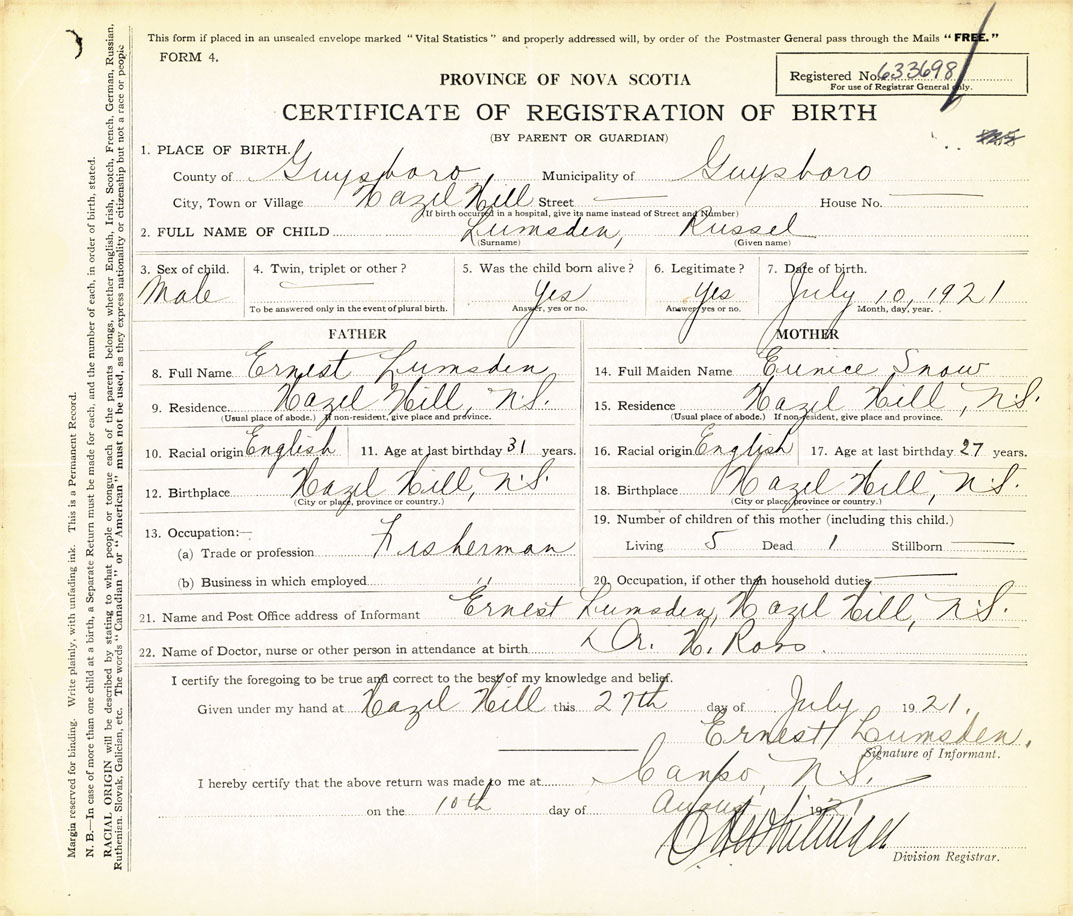 This form if placed in an unsealed envelope marked "Vital Statistics" and properly addressed will, by order of the Postmaster General pass through the Mails "FREE."
FORM 4.
Registered No. 633698
For use of Registrar General only.
PROVINCE OF NOVA SCOTIA
CERTIFICATE OF REGISTRATION OF BIRTH
(BY PARENT OR GUARDIAN)
1. PLACE OF BIRTH.
County of Guysboro Municipality of Guysboro
City, Town or Village Hazil Hill Street House No.
(If birth occurred in a hospital, give its name instead of Street and Number)
2. FULL NAME OF CHILD Lumsden, Russel
(Surname) (Given name)
3. Sex of child. 4. Twin, triplet or other? 5. Was the child born alive? 6. Legitimate? 7. Date of birth.
Male Yes Yes July 10, 1921
To be answered only in the event of plural birth. Answer, yes or no. Answer, yes or no. Month, day, year.
FATHER
8. Full Name Ernest Lumsden
9. Residence Hazel Hill, N.S.
(Usual place of abode.) If non-resident, give place and province.
10. Racial origin English 11. Age at last birthday 31 years.
12. Birthplace Hazil Hill, N.S.
(City or place, province or country.)
13. Occupation:—
(a) Trade or profession Fisherman
(b) Business in which employed "
MOTHER
14. Full Maiden Name Eunice Snow
15. Residence Hazel Hill, N.S.
(Usual place of abode.) If non-resident, give place and province.
16. Racial origin English 17. Age at last birthday 27 years.
18. Birthplace Hazel Hill, N.S.
(City or place, province or country.)
19. Number of children of this mother (including this child.)
Living 5 Dead 1 Stillborn
20. Occupation, if other than household duties
21. Name and Post Office address of Informant Ernest Lumsden, Hazil Hill, N.S.
22. Name of Doctor, nurse or other person in attendance at birth Dr. H. Ross.
I certify the foregoing to be true and correct to the best of my knowledge and belief.
Given under my hand at Hazil Hill this 27th day of July 1921.
Ernest Lumsden.
Signature of Informant.
I hereby certify that the above return was made to me at Canso, N.S.
on the 10th day of August 1921
Division Registrar.
Margin reserved for binding. Write plainly, with unfading ink. This is a Permanent Record.
N. B.—In case of more than one child at a birth, a Separate Return must be made for each, and the number of each, in order of birth, stated.
RACIAL ORIGIN will be described by stating to what people or tongue each of the parents belongs, whether English, Irish, Scotch, French, German, Russian,
Ruthenian, Slovak, Galician, etc. The words "Canadian" or "American" must not be used, as they express nationality or citizenship but not a race or people